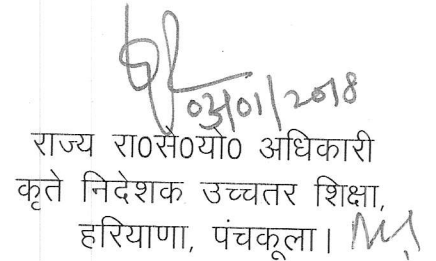 03/01/2018
राज्य रा0से0यो0 अधिकारी
कृते निदेशक उच्चतर शिक्षा,
हरियाणा, पंचकूला।